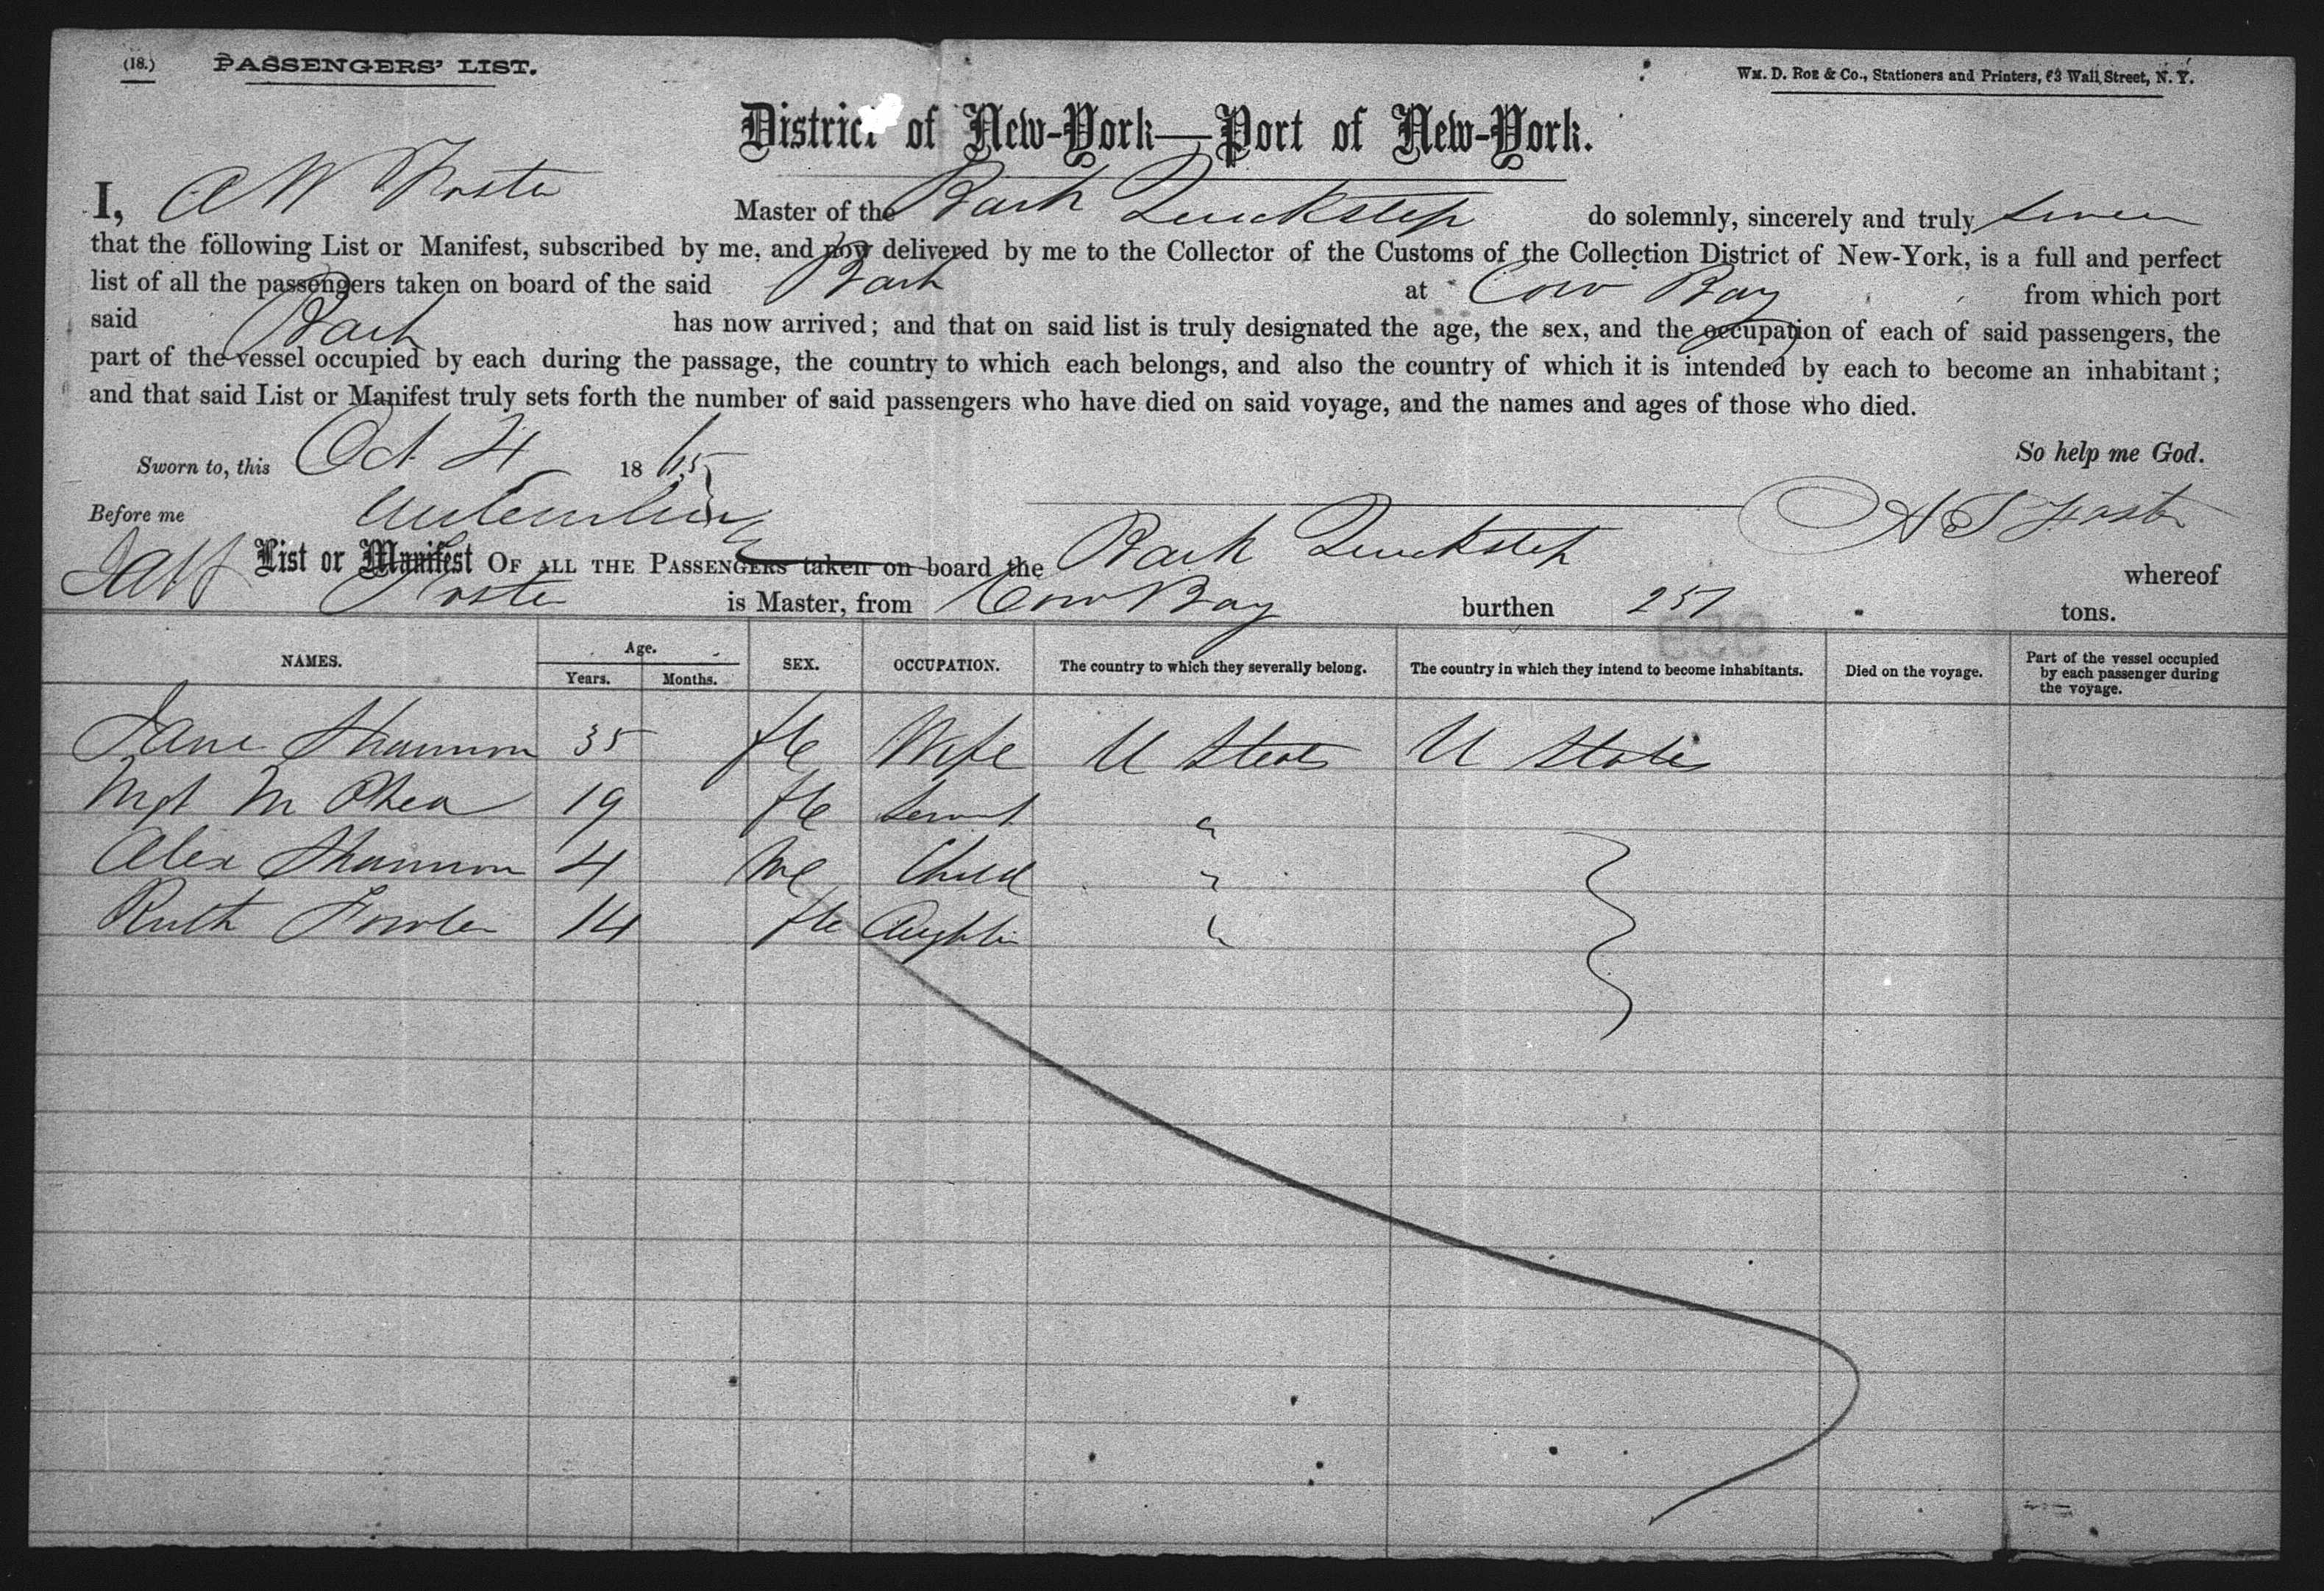 (18.) PASSENGERS' LIST. Wm. D. Roe & Co., Stationers and Printers, 63 Wall Street, N. Y.
District of New-York—Port of New-York.
I, A W Foster Master of the Bark Quickstep do solemnly, sincerely and truly swear
that the following List or Manifest, subscribed by me, and now delivered by me to the Collector of the Customs of the Collection District of New-York, is a full and perfect
list of all the passengers taken on board of the said Bark at Cow Bay from which port
said Bark has now arrived; and that on said list is truly designated the age, the sex, and the occupation of each of said passengers, the
part of the vessel occupied by each during the passage, the country to which each belongs, and also the country of which it is intended by each to become an inhabitant;
and that said List or Manifest truly sets forth the number of said passengers who have died on said voyage, and the names and ages of those who died.
So help me God.
Sworn to, this Oct 4 1865
Before me Foster
List or Manifest OF ALL THE PASSENGERS taken on board the Bark Quickstep whereof
Foster is Master, from Cow Bay burthen 257 tons.
NAMES. Age. Years. Months. SEX. OCCUPATION. The country to which they severally belong. The country in which they intend to become inhabitants. Died on the voyage. Part of the vessel occupied by each passenger during the voyage.
Jane Shannon 35 fle Wife U States U States
Mgt Mc Phea 19 fle Servant "
Alex Shannon 4 Me Child "
Ruth Fowler 14 fle "